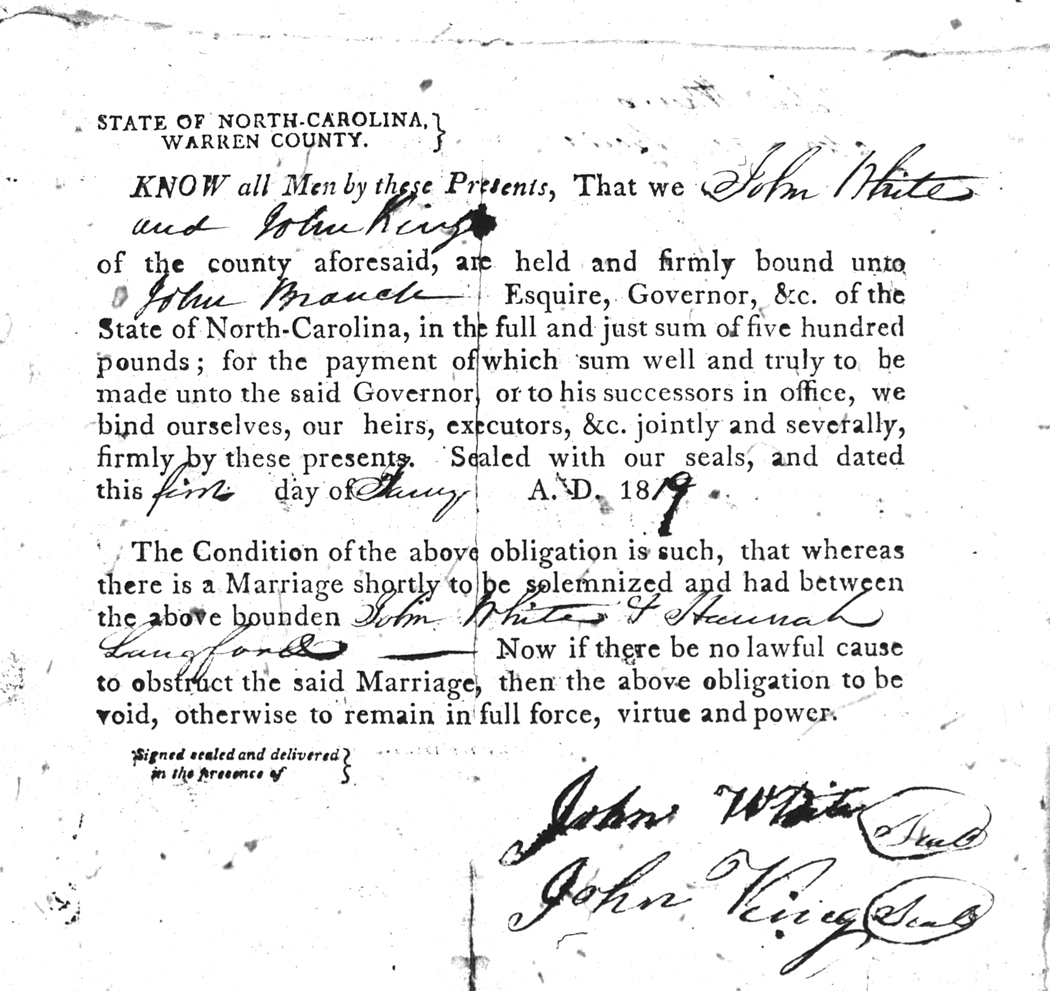 STATE OF NORTH-CAROLINA,
WARREN COUNTY.
KNOW all Men by these Presents, That we John White
and John King
of the county aforesaid, are held and firmly bound unto
John Branch Esquire, Governor, &c. of the
State of North-Carolina, in the full and just sum of five hundred
pounds; for the payment of which sum well and truly to be
made unto the said Governor, or to his successors in office, we
bind ourselves, our heirs, executors, &c. jointly and severally,
firmly by these presents. Sealed with our seals, and dated
this first day of A. D. 1819
The Condition of the above obligation is such, that whereas
there is a Marriage shortly to be solemnized and had between
the above bounden John White & Hannah
Langford Now if there be no lawful cause
to obstruct the said Marriage, then the above obligation to be
void, otherwise to remain in full force, virtue and power.
Signed sealed and delivered
in the presence of
John White Seal
John King Seal